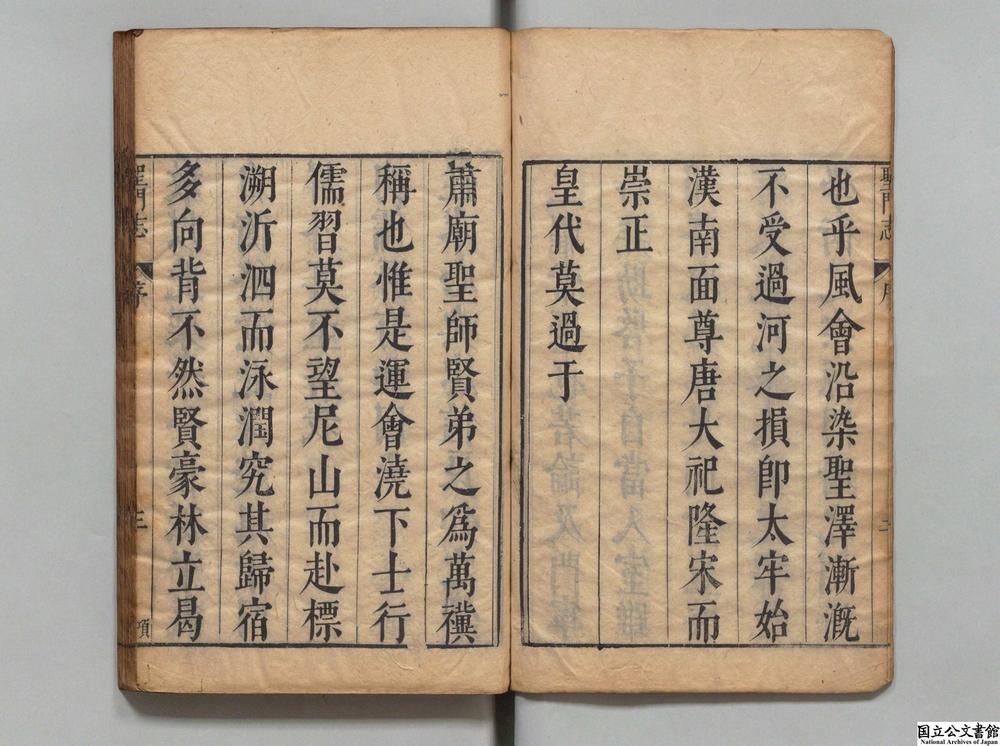 聖門志 序 二
也乎風會沿染聖澤漸漑
不受過河之損卽太牢始
漢南面尊唐大祀隆宋而
崇正
皇代莫過于
肅廟聖師賢弟之爲萬禩
稱也惟是運會澆下士行
儒習莫不望尼山而赴標
溯沂泗而泳潤究其歸宿
多向背不然賢豪林立曷
聖門志 序 三
国立公文書館
National Archives of Japan